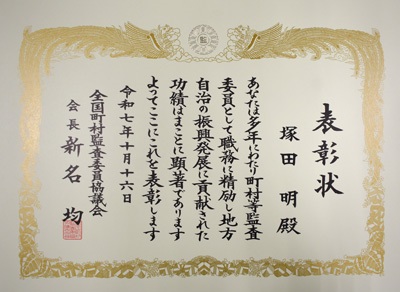 表彰状
塚田明殿
あなたは多年にわたり町村等監査
委員として職務に精励し地方
自治の振興発展に貢献された
功績はまことに顕著であります
よってここにこれを表彰します
令和七年十月十六日
全国町村監査委員協議会
会長 新名均